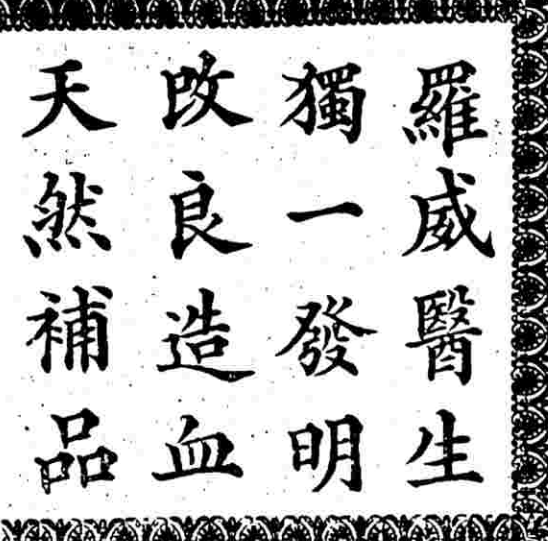 羅威醫生
獨一發明
改良造血
天然補品